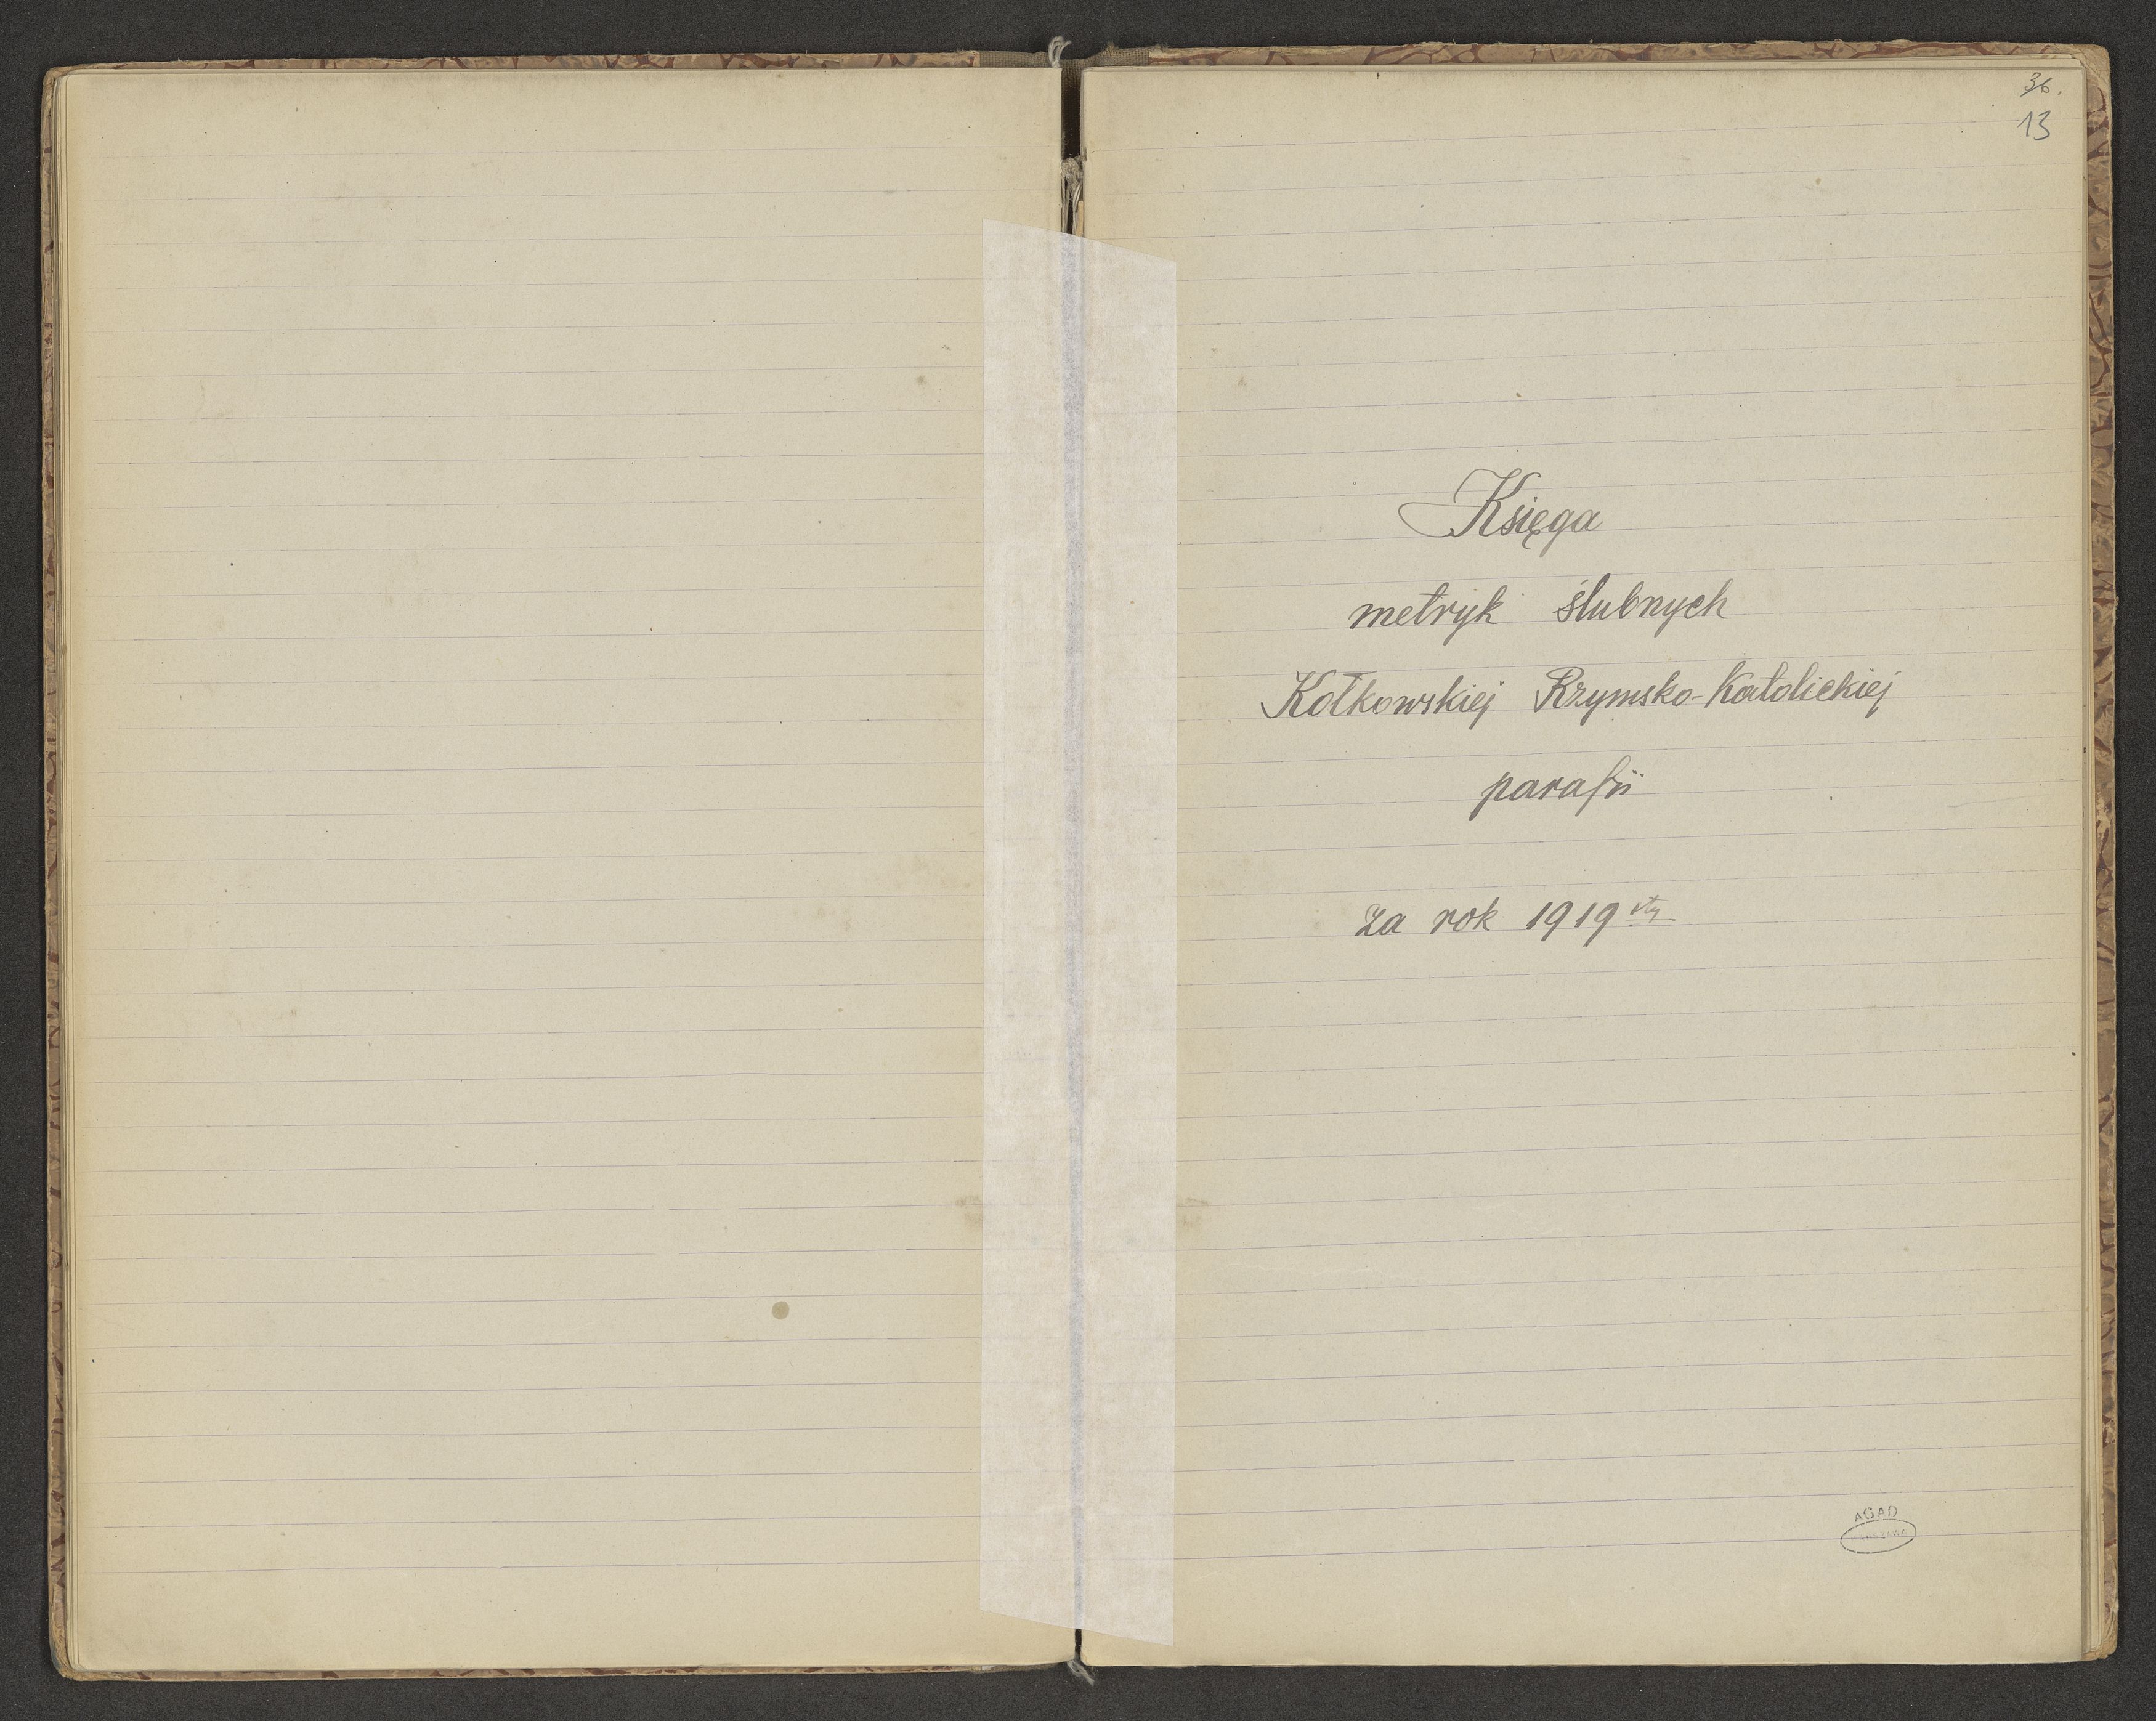 36.
13
Księga
metryk ślubnych
Kołkowskiej Rzymsko-Katolickiej
parafii
za rok 1919 sty
AGAD